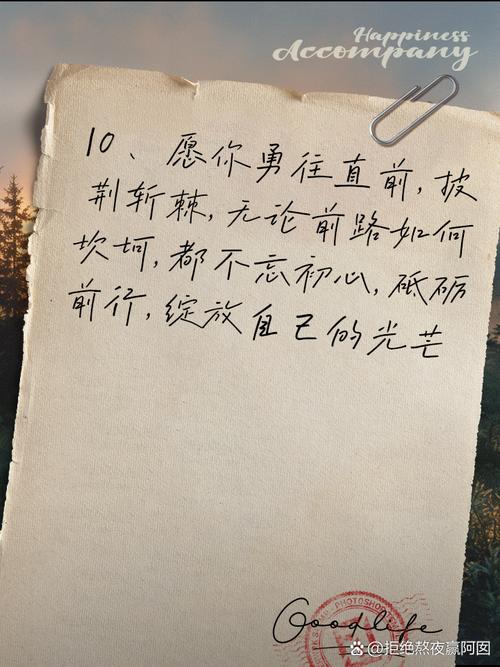 Happiness
Accompany
10、愿你勇往直前,披
荆斩棘,无论前路如何
坎坷,都不忘初心,砥砺
前行,绽放自己的光芒
Goodlife
PHOTOSHOP
@拒绝熬夜赢阿囡